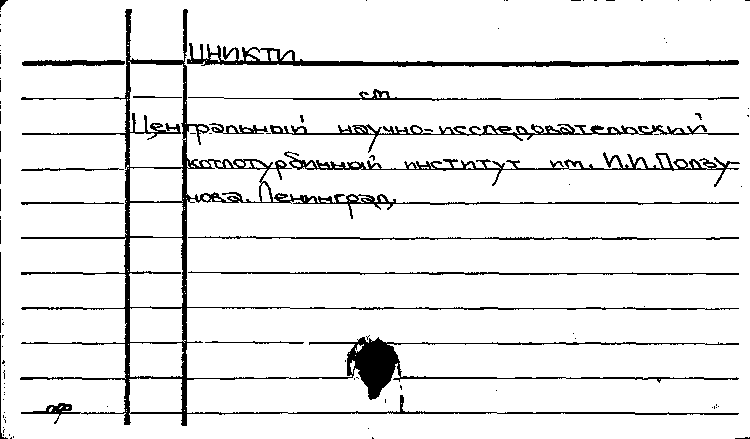 ЦНИКТИ.
см.
Центральный научно-исследовательский
котлотурбинный институт им. И.И.Ползу-
нова. Ленинград.